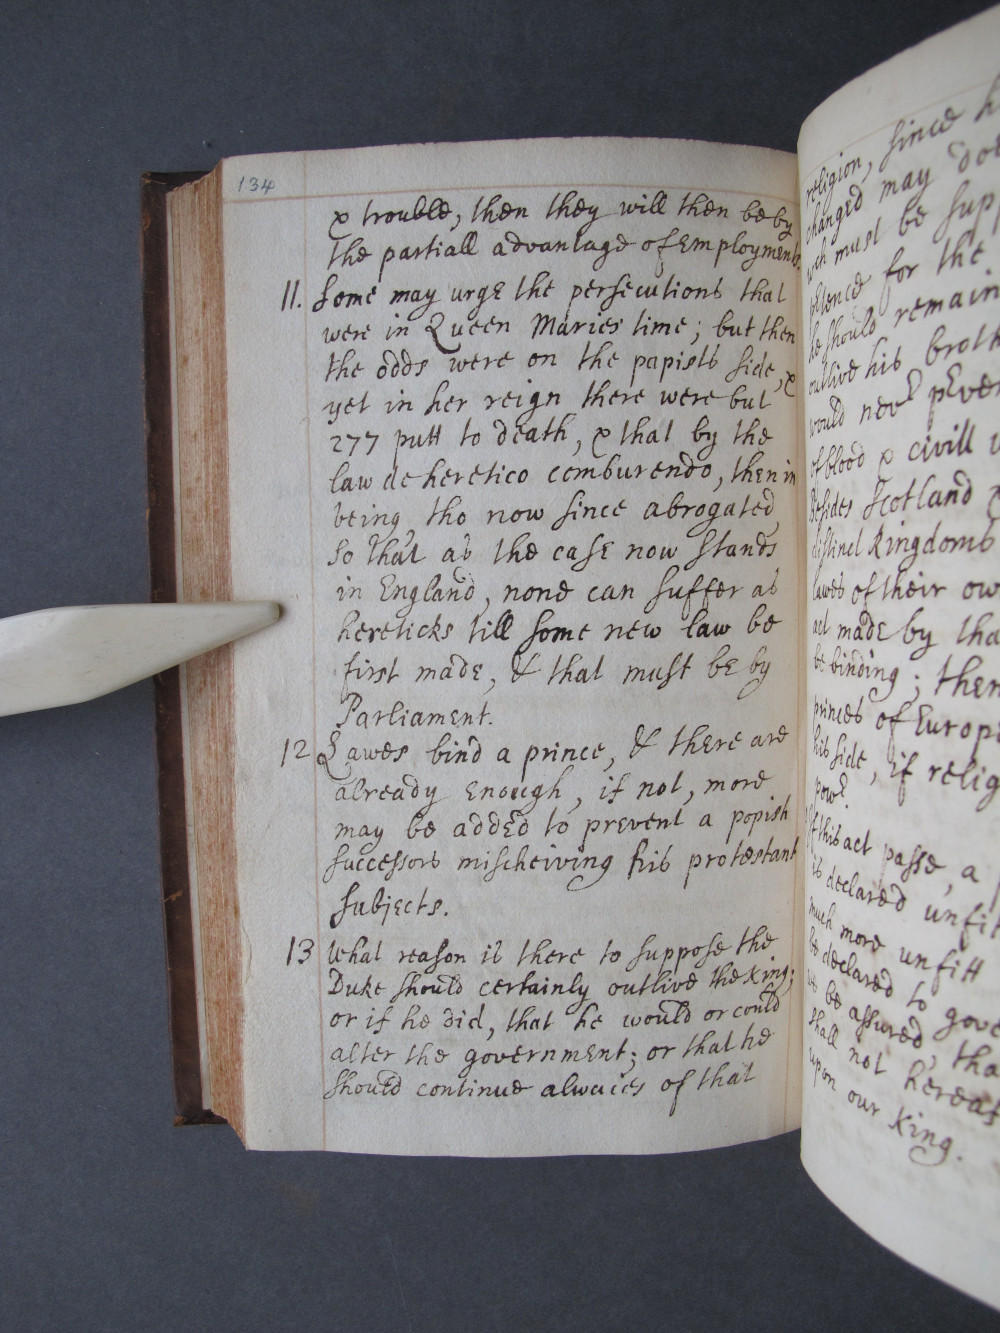 134
& trouble, then they will then be by
the partiall advantage of Employments.
11. Some may urge the persecutions that
were in Queen Maries time; but then
the odds were on the papists side, &
yet in her reign there were but
277 putt to death, & that by the
law de heretico comburendo, then in
being, tho now since abrogated,
So that as the case now stands
in England, none can suffer as
hereticks till some new law be
first made, & that must be by
Parliament.
12 Lawes bind a prince, & there are
already Enough, if not, more
may be added to prevent a popish
successors mischeiving his protestant
subjects.
13 What reason is there to suppose the
Duke should certainly outlive the King;
or if he did, that he would or could
alter the government; or that he
should continue alwaies of that
religion, since h
changed may doe
wch must be sup
for the
he should remain
outlive his broth
would nev
of blood & civill
Besides Scotland &
distinct Kingdoms
lawes of their ow
act made by tha
be binding; then
princes of Europ
his side, if relig
If this act passe, a
is declared unfit
much more unfitt
be declared to gove
we be assured, tha
shall not hereaf
upon our King.